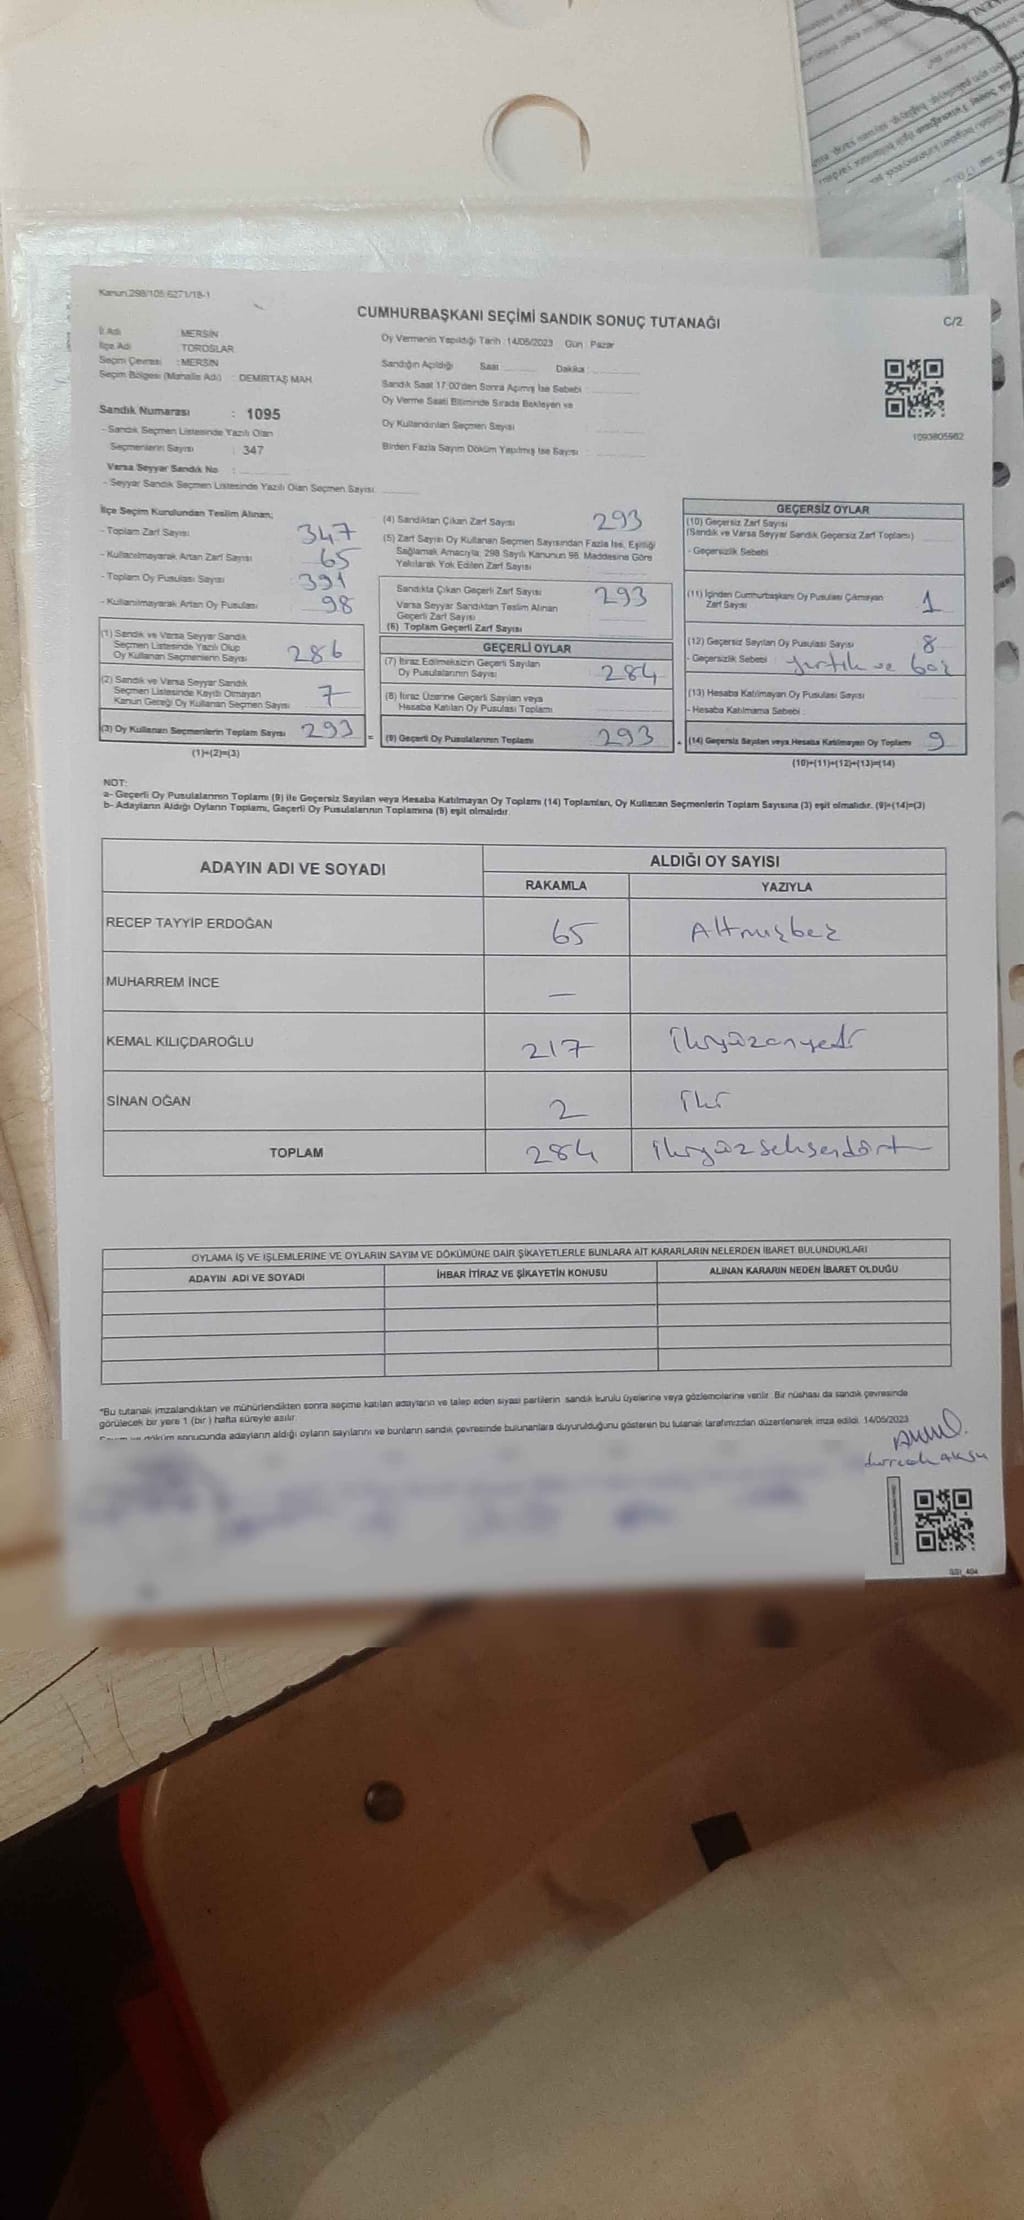 Kanun:298/105:6271/18-1
CUMHURBAŞKANI SEÇİMİ SANDIK SONUÇ TUTANAĞI
C/2
İl Adı MERSİN
İlçe Adı TOROSLAR
Seçim Çevresi : MERSİN
Seçim Bölgesi (Mahalle Adı) : DEMİRTAŞ MAH
Oy Vermenin Yapıldığı Tarih : 14/05/2023 Gün : Pazar
Sandığın Açıldığı Saat Dakika :
Sandık Saat 17:00'den Sonra Açılmış İse Sebebi
Oy Verme Saati Bitiminde Sırada Bekleyen ve
Oy Kullandırılan Seçmen Sayısı
Birden Fazla Sayım Döküm Yapılmış İse Sayısı
1093805962
Sandık Numarası : 1095
- Sandık Seçmen Listesinde Yazılı Olan
Seçmenlerin Sayısı : 347
Varsa Seyyar Sandık No
- Seyyar Sandık Seçmen Listesinde Yazılı Olan Seçmen Sayısı
İlçe Seçim Kurulundan Teslim Alınan;
- Toplam Zarf Sayısı 347
- Kullanılmayarak Artan Zarf Sayısı 65
- Toplam Oy Pusulası Sayısı 391
- Kullanılmayarak Artan Oy Pusulası 98
(1) Sandık ve Varsa Seyyar Sandık
Seçmen Listesinde Yazılı Olup
Oy Kullanan Seçmenlerin Sayısı 286
(2) Sandık ve Varsa Seyyar Sandık
Seçmen Listesinde Kayıtlı Olmayan
Kanun Gereği Oy Kullanan Seçmen Sayısı 7
(3) Oy Kullanan Seçmenlerin Toplam Sayısı 293
(1)+(2)=(3)
(4) Sandıktan Çıkan Zarf Sayısı 293
(5) Zarf Sayısı Oy Kullanan Seçmen Sayısından Fazla İse, Eşitliği
Sağlamak Amacıyla; 298 Sayılı Kanunun 98. Maddesine Göre
Yakılarak Yok Edilen Zarf Sayısı
Sandıkta Çıkan Geçerli Zarf Sayısı 293
Varsa Seyyar Sandıktan Teslim Alınan
Geçerli Zarf Sayısı
(6) Toplam Geçerli Zarf Sayısı
GEÇERLİ OYLAR
(7) İtiraz Edilmeksizin Geçerli Sayılan
Oy Pusulalarının Sayısı 284
(8) İtiraz Üzerine Geçerli Sayılan veya
Hesaba Katılan Oy Pusulası Toplamı
= (9) Geçerli Oy Pusulalarının Toplamı 293
GEÇERSİZ OYLAR
(10) Geçersiz Zarf Sayısı
(Sandık ve Varsa Seyyar Sandık Geçersiz Zarf Toplamı)
- Geçersizlik Sebebi
(11) İçinden Cumhurbaşkanı Oy Pusulası Çıkmayan
Zarf Sayısı 1
(12) Geçersiz Sayılan Oy Pusulası Sayısı 8
- Geçersizlik Sebebi : yırtık ve boz
(13) Hesaba Katılmayan Oy Pusulası Sayısı
- Hesaba Katılmama Sebebi :
+ (14) Geçersiz Sayılan veya Hesaba Katılmayan Oy Toplamı 9
(10)+(11)+(12)+(13)=(14)
NOT:
a- Geçerli Oy Pusulalarının Toplamı (9) ile Geçersiz Sayılan veya Hesaba Katılmayan Oy Toplamı (14) Toplamları, Oy Kullanan Seçmenlerin Toplam Sayısına (3) eşit olmalıdır. (9)+(14)=(3)
b- Adayların Aldığı Oyların Toplamı, Geçerli Oy Pusulalarının Toplamına (9) eşit olmalıdır.
ADAYIN ADI VE SOYADI ALDIĞI OY SAYISI
RAKAMLA YAZIYLA
RECEP TAYYİP ERDOĞAN 65 Altmışbeş
MUHARREM İNCE —
KEMAL KILIÇDAROĞLU 217 İkiyüzonyedi
SİNAN OĞAN 2 İki
TOPLAM 284 İkiyüzseksendört
OYLAMA İŞ VE İŞLEMLERİNE VE OYLARIN SAYIM VE DÖKÜMÜNE DAİR ŞİKAYETLERLE BUNLARA AİT KARARLARIN NELERDEN İBARET BULUNDUKLARI
ADAYIN ADI VE SOYADI İHBAR İTİRAZ VE ŞİKAYETİN KONUSU ALINAN KARARIN NEDEN İBARET OLDUĞU
"Bu tutanak imzalandıktan ve mühürlendikten sonra seçime katılan adayların ve talep eden siyasi partilerin sandık kurulu üyelerine veya gözlemcilerine verilir. Bir nüshası da sandık çevresinde
görülecek bir yere 1 (bir) hafta süreyle asılır.
sonucunda adayların aldığı oyların sayılarını ve bunların sandık çevresinde bulunanlara duyurulduğunu gösteren bu tutanak tarafımızdan düzenlenerek imza edildi. 14/05/2023